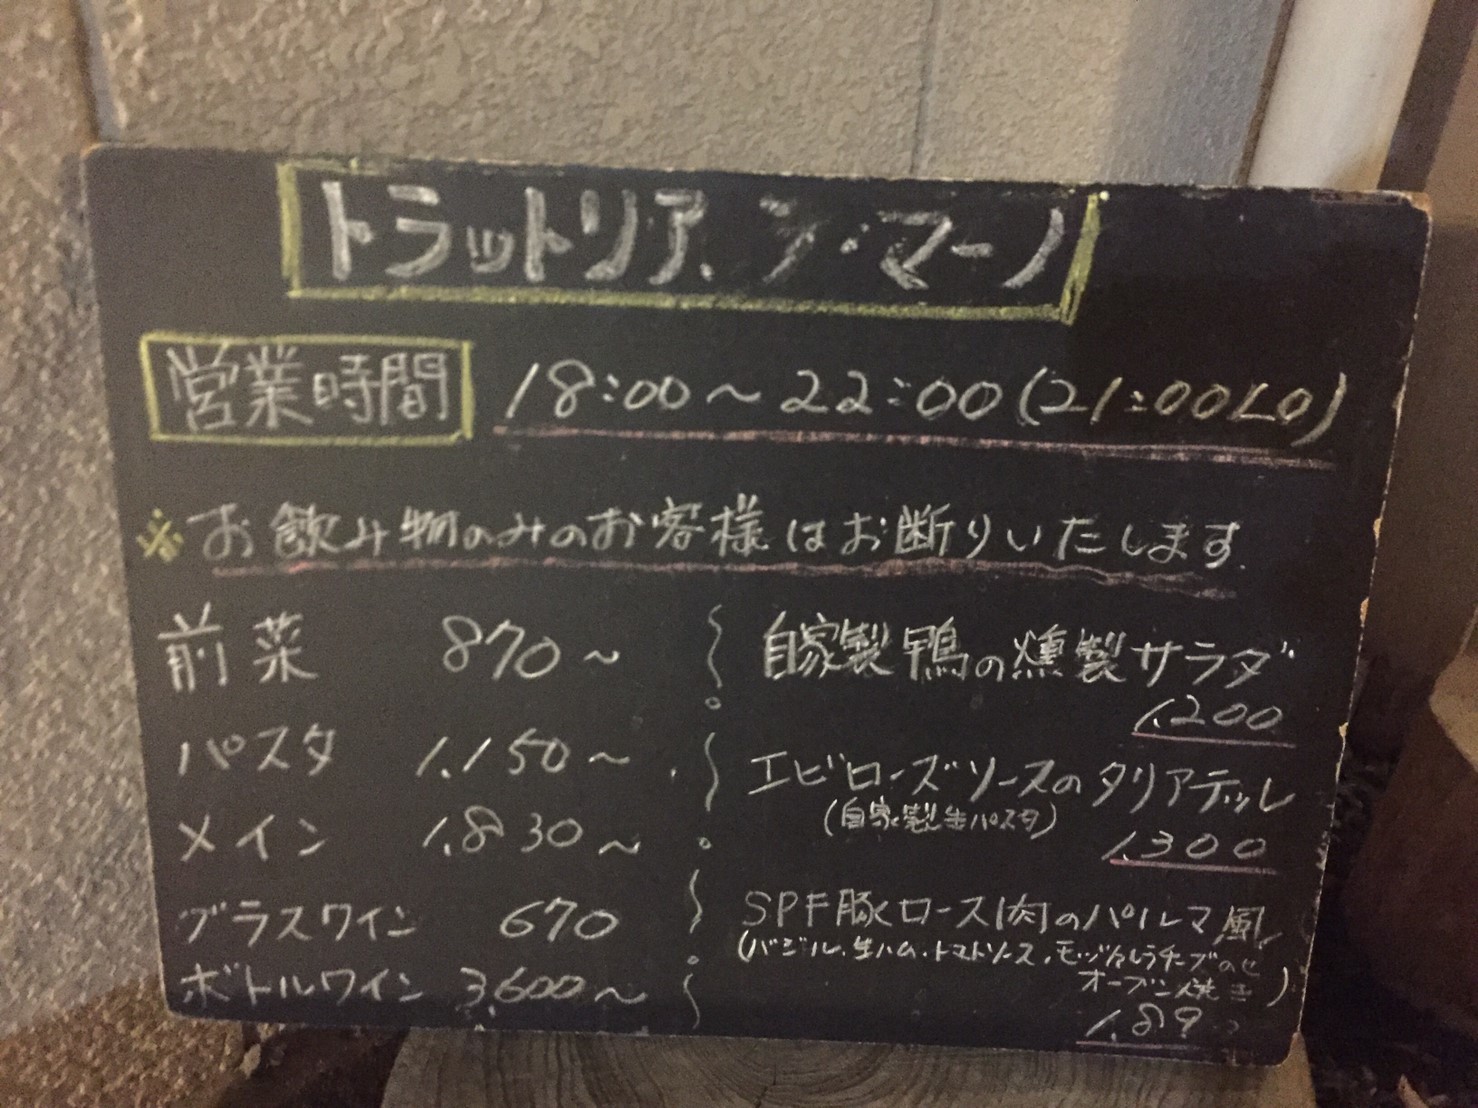 トラットリア ア・マーノ
営業時間 18:00～22:00(21:00LO)
※お飲み物のみのお客様はお断りいたします.
前菜 870～
パスタ 1,150～
メイン 1,830～
グラスワイン 670
ボトルワイン 3,600～
自家製鴨の燻製サラダ
1,200
エビローズソースのタリアテッレ
(自家製生パスタ)
1,300
SPF豚ロース肉のパルマ風
(バジル、生ハム・トマトソース・モッツァレラチーズのせ
オーブン焼き)